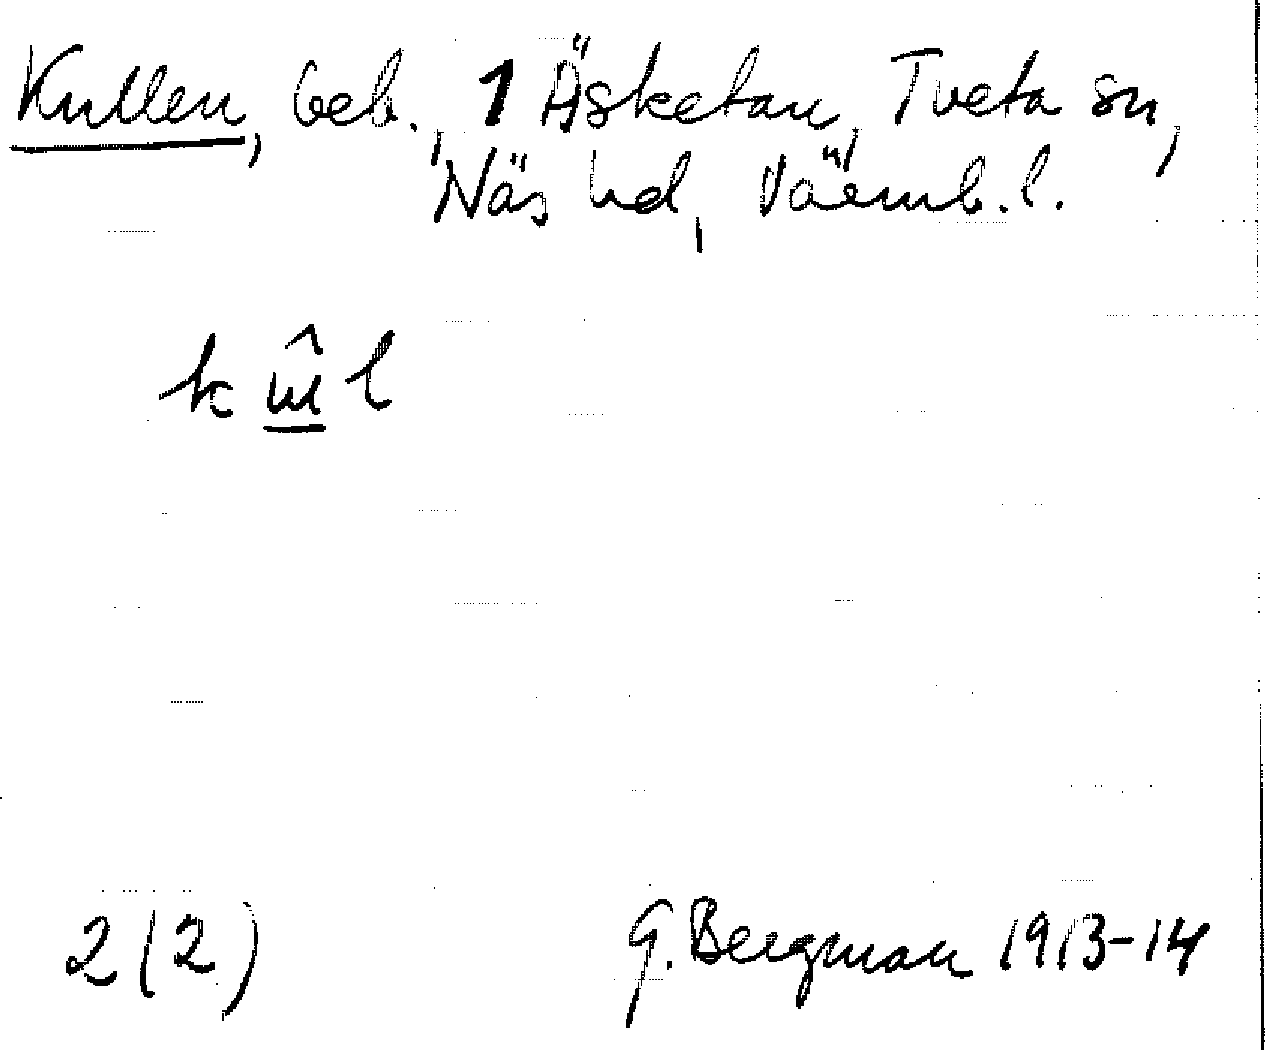 Kullen, beb., 1 Äsketan, Tveta sn,
Näs hd, Värmb. l.
2(2)
G. Bergman 1913-14